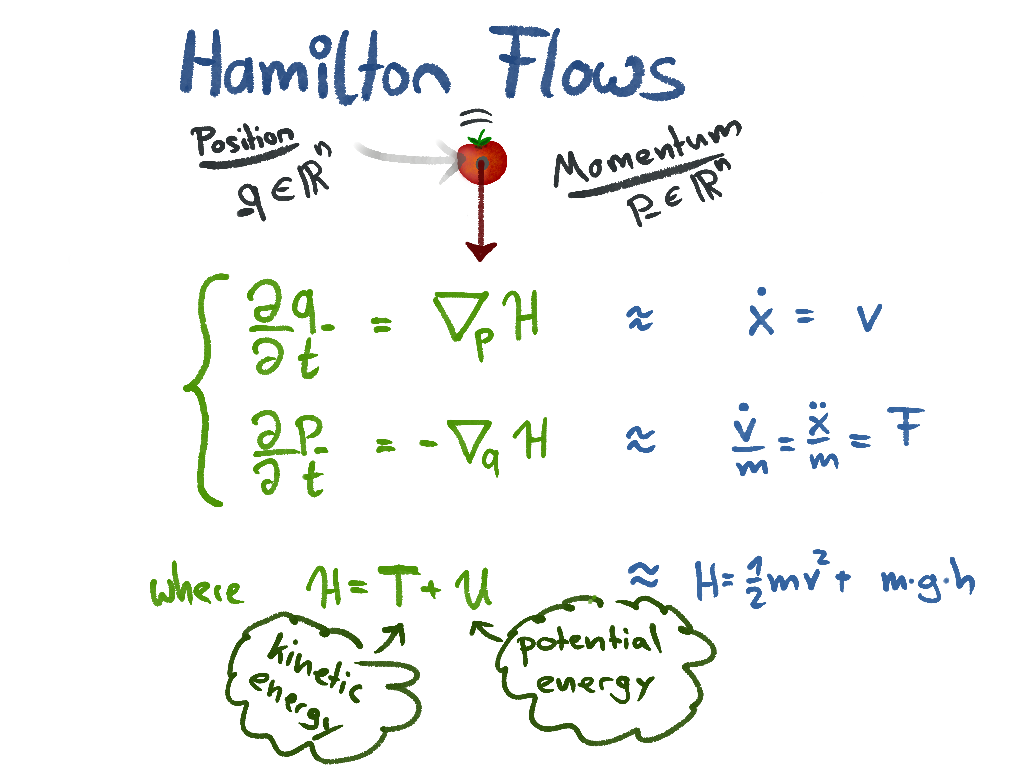 Hamilton Flows
Position
q ∈ ℝⁿ
Momentum
p ∈ ℝⁿ
∂q/∂t = ∇ₚ H ≈ ẋ = v
∂p/∂t = -∇q H ≈ v̇/m = ẍ/m = F
where H = T + U ≈ H = 1/2 mv² + m·g·h
kinetic
energy
potential
energy